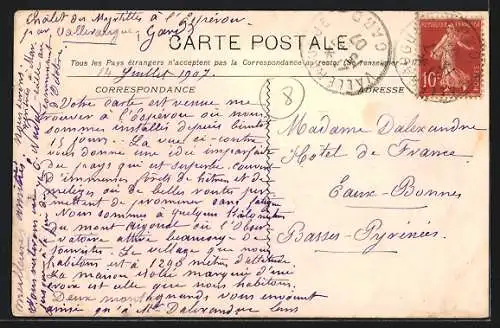 Châlet des Myrtilles à l'Espérou
par Valleraugue, Gard
CARTE POSTALE
Tous les Pays étrangers n'acceptent pas la Correspondance au recto. (Se renseigner
14 Juillet 1907.
CORRESPONDANCE
ADRESSE
GARD
10
8
Votre carte est venue me
trouver à l'Espérou où nous
sommes installés depuis bientôt
15 jours. La vue ci-contre
vous donne une idée imparfaite
du pays qui est superbe, couvert
d'immenses forêts de hêtres et de
mélèzes où de belles routes per
mettent de promener sans fatigue
Nous sommes à quelques kilomètres
du mont Aigoual où l'Obser
vatoire attire beaucoup de
touristes. Le village que nous
habitons est à 1240 mètres d'altitude
La maison isolée marquée d'une
croix est celle que nous habitons.
Deux montagnards vous envoient
ainsi qu'à Mr Dalexandre leurs
meilleures amitiés.
Madame Dalexandre
Hotel de France
Eaux-Bonnes
Basses-Pyrénées.